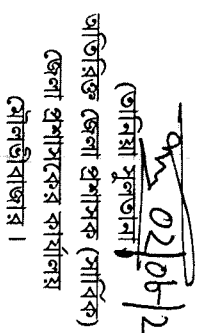 02/06/2
(তানিয়া সুলতানা)
অতিরিক্ত জেলা প্রশাসক (সার্বিক)
জেলা প্রশাসকের কার্যালয়
মৌলভীবাজার।